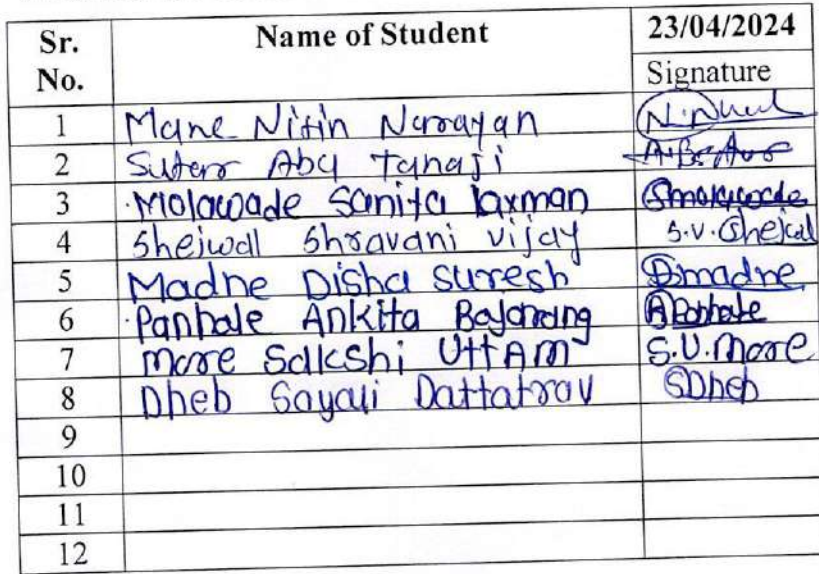 Sr. No. Name of Student 23/04/2024
Signature
1 Mane Nitin Narayan
2 Sutar Aba Tanaji
3 Molawade Sanita laxman Smolawade
4 Shejwal Shravani vijay S.V. Shejwal
5 Madne Disha Suresh Dmadne
6 Panhale Ankita Bajarang APanhale
7 more Sakshi UttAm S.U.More
8 Dheb Sayali Dattatray SDheb
9
10
11
12